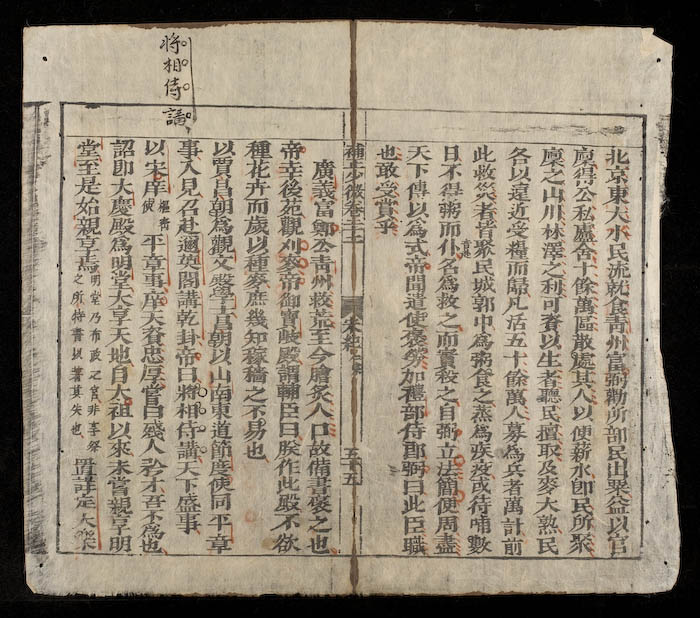 將相侍講
北京東大水民流就食青州富弼勸所部民出粟益以官
廩得公私廬舍十餘萬區散處其人以便薪水卽民所聚
廩之山川林澤之利可資以生者聽民擅取及麥大熟民
各以遠近受糧而歸凡活五十餘萬人募為兵者萬計前
此救災者皆聚民城郭中為粥食之蒸為疾疫或待哺數
日不得粥而仆名為救之而實殺之自弼立法簡便周盡
天下傳以為式帝聞遣使褒勞加禮部侍郎弼曰此臣職
也敢受賞乎
補正少微卷三十二
宋紀
五十五
廣義富鄭公青州救荒至今膾炙人口故備書褒之也
帝幸後苑觀刈麥帝御寶岐殿謂輔臣曰朕作此殿不欲
種花卉而歲以種麥庶幾知稼穡之不易也
以賈昌朝為觀文殿學士昌朝以山南東道節度使同平章
事入見召赴邇英閣講乾卦帝曰將相侍講天下盛事
以宋庠樞密使平章事庠天資忠厚嘗曰殘人矜才吾不為也
詔即大慶殿為明堂大享天地自太祖以來未嘗親享明
堂至是始親享焉明堂乃布政之宮非享祭之所特書以著其失也置詳定大樂